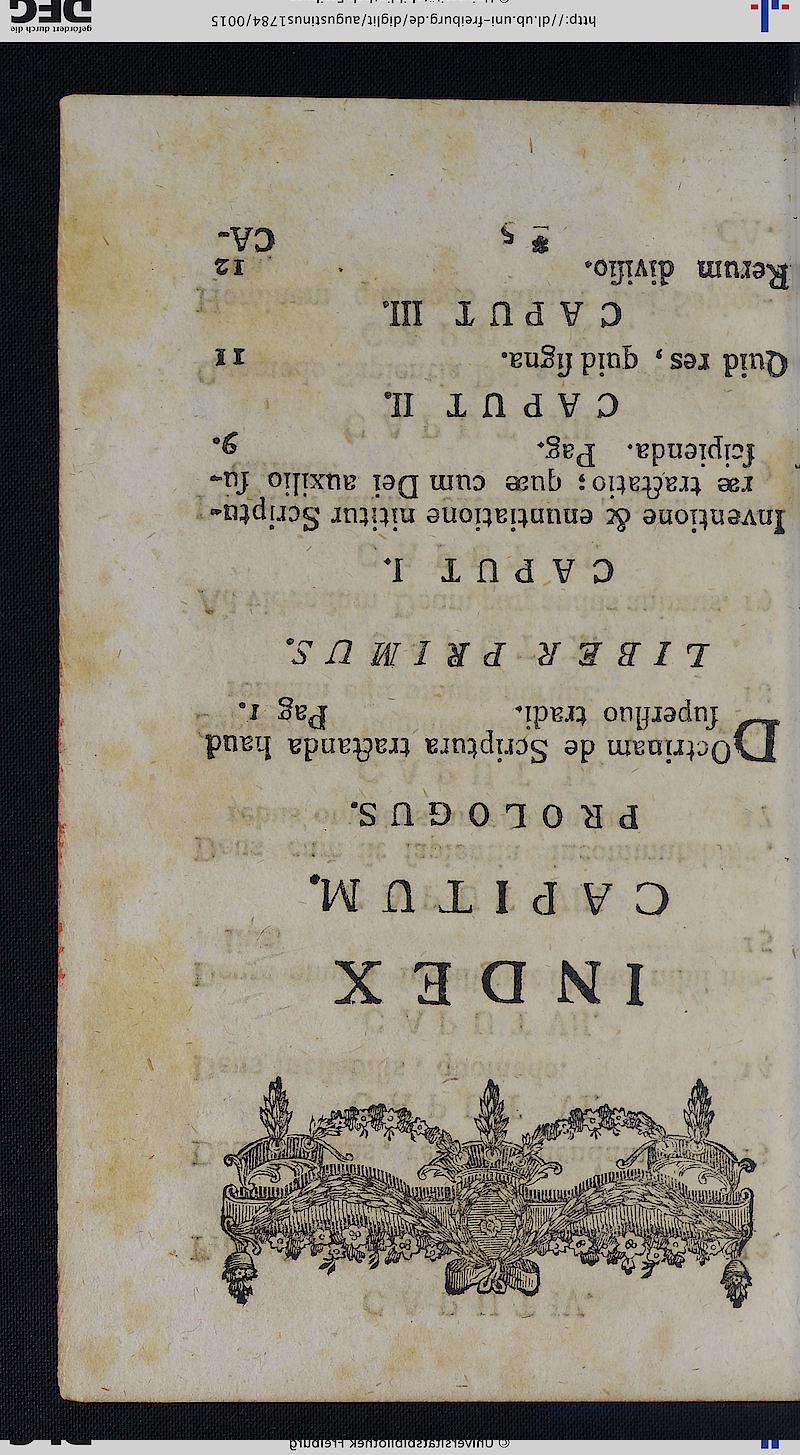 INDEX
CAPITUM.
PROLOGUS.
DOctrinam de Scriptura tractanda haud
superfluo tradi. Pag 1.
LIBER PRIMUS.
CAPUT I.
Inventione & enuntiatione nititur Scriptu-
ræ tractatio; quæ cum Dei auxilio su-
scipienda. Pag. 9.
CAPUT II.
Quid res, quid signa. 11
CAPUT III.
Rerum divisio. 12
* 5 CA-
http://dl.ub.uni-freiburg.de/diglit/augustinus1784/0015
© Universitätsbibliothek Freiburg
gefördert durch die
DFG